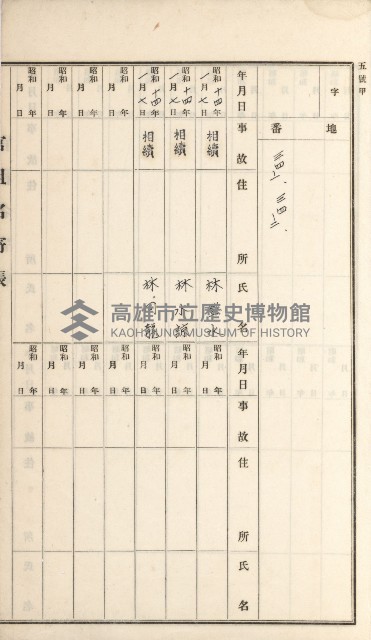 五號甲
字
地番
三四ノ一、三四ノ二、
年月日
事故
住所
氏名
昭和十四年一月七日
相續
昭和十四年一月七日
相續
昭和十四年一月七日
相續
昭和 年 月 日
昭和 年 月 日
昭和 年 月 日
昭和 年 月 日
年月日
事故
住所
氏名
昭和 年 月 日
昭和 年 月 日
昭和 年 月 日
昭和 年 月 日
昭和 年 月 日
昭和 年 月 日
昭和 年 月 日
高雄市立歷史博物館
KAOHSIUNG MUSEUM OF HISTORY